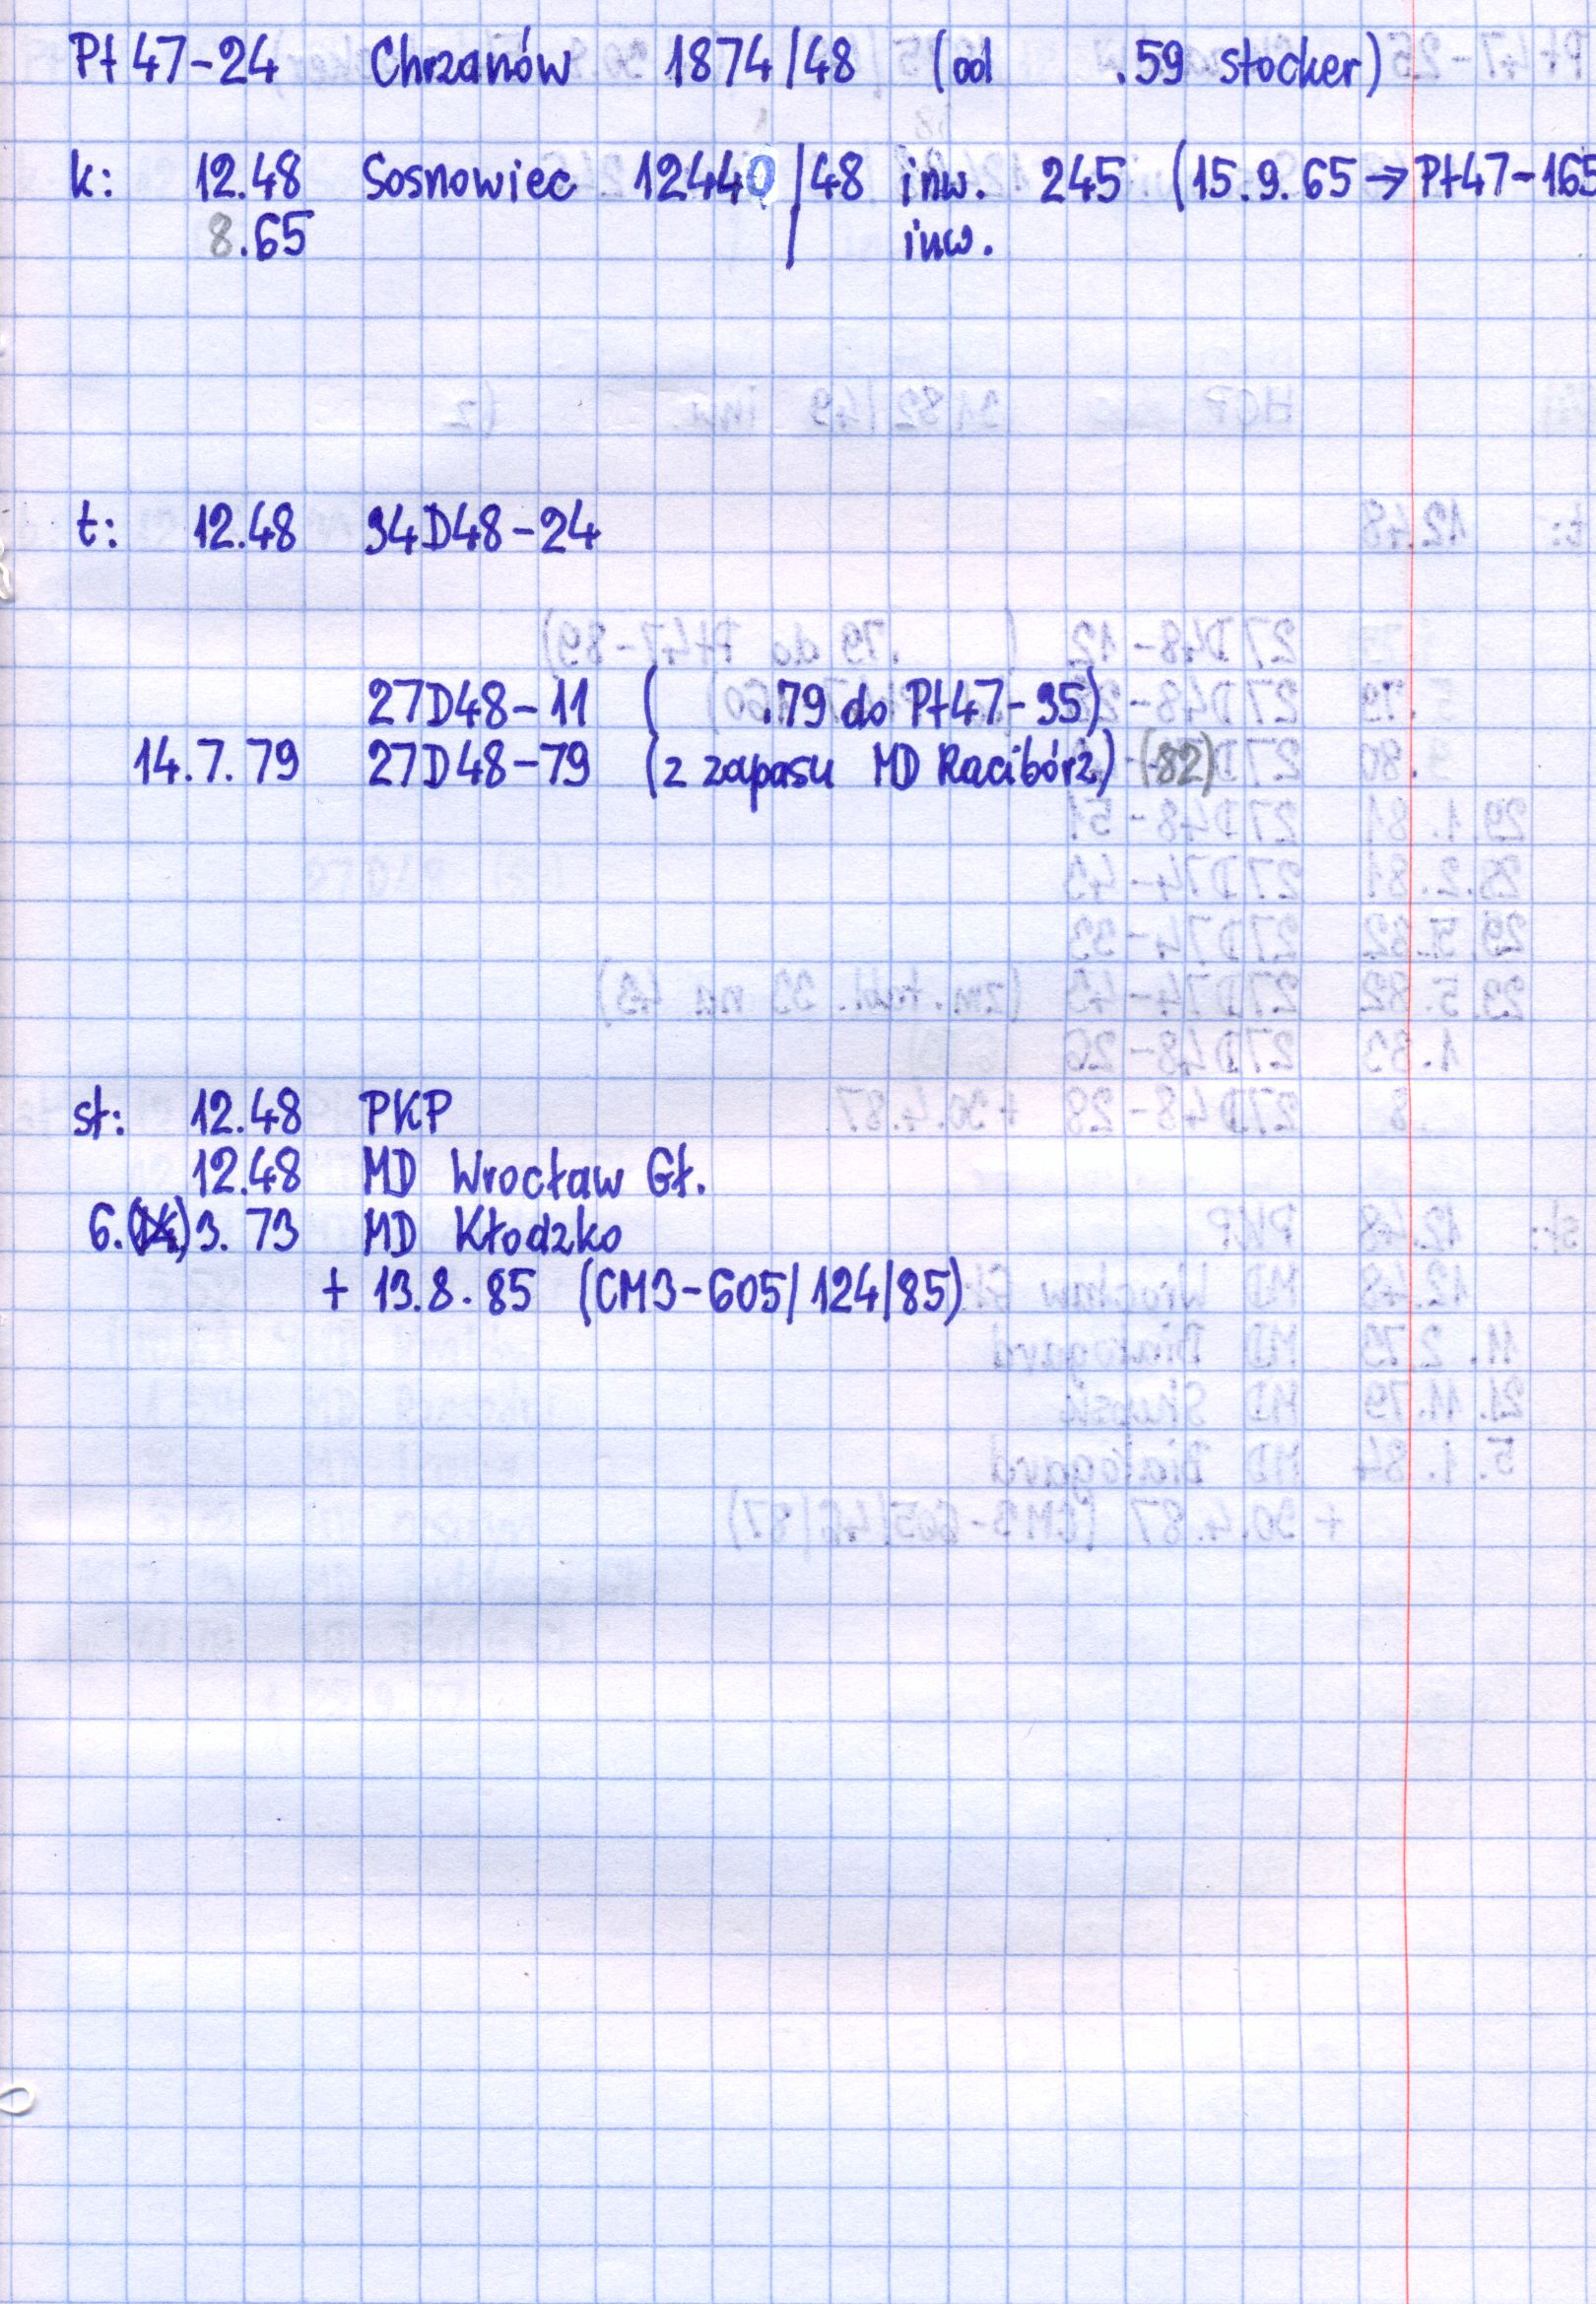 Pt 47-24 Chrzanów 1874/48 (od .59 stocker)
k: 12.48 Sosnowiec 12440/48 inw. 245 (15.9.65 → Pt47-165
8.65 / inw.
t: 12.48 34D48-24
27D48-11 ( .79 do Pt47-95)
14.7.79 27D48-79 (z zapasu MD Racibórz) (82)
st: 12.48 PKP
12.48 MD Wrocław Gł.
6. 3. 73 MD Kłodzko
+ 13.8.85 (CM3-605/124/85)